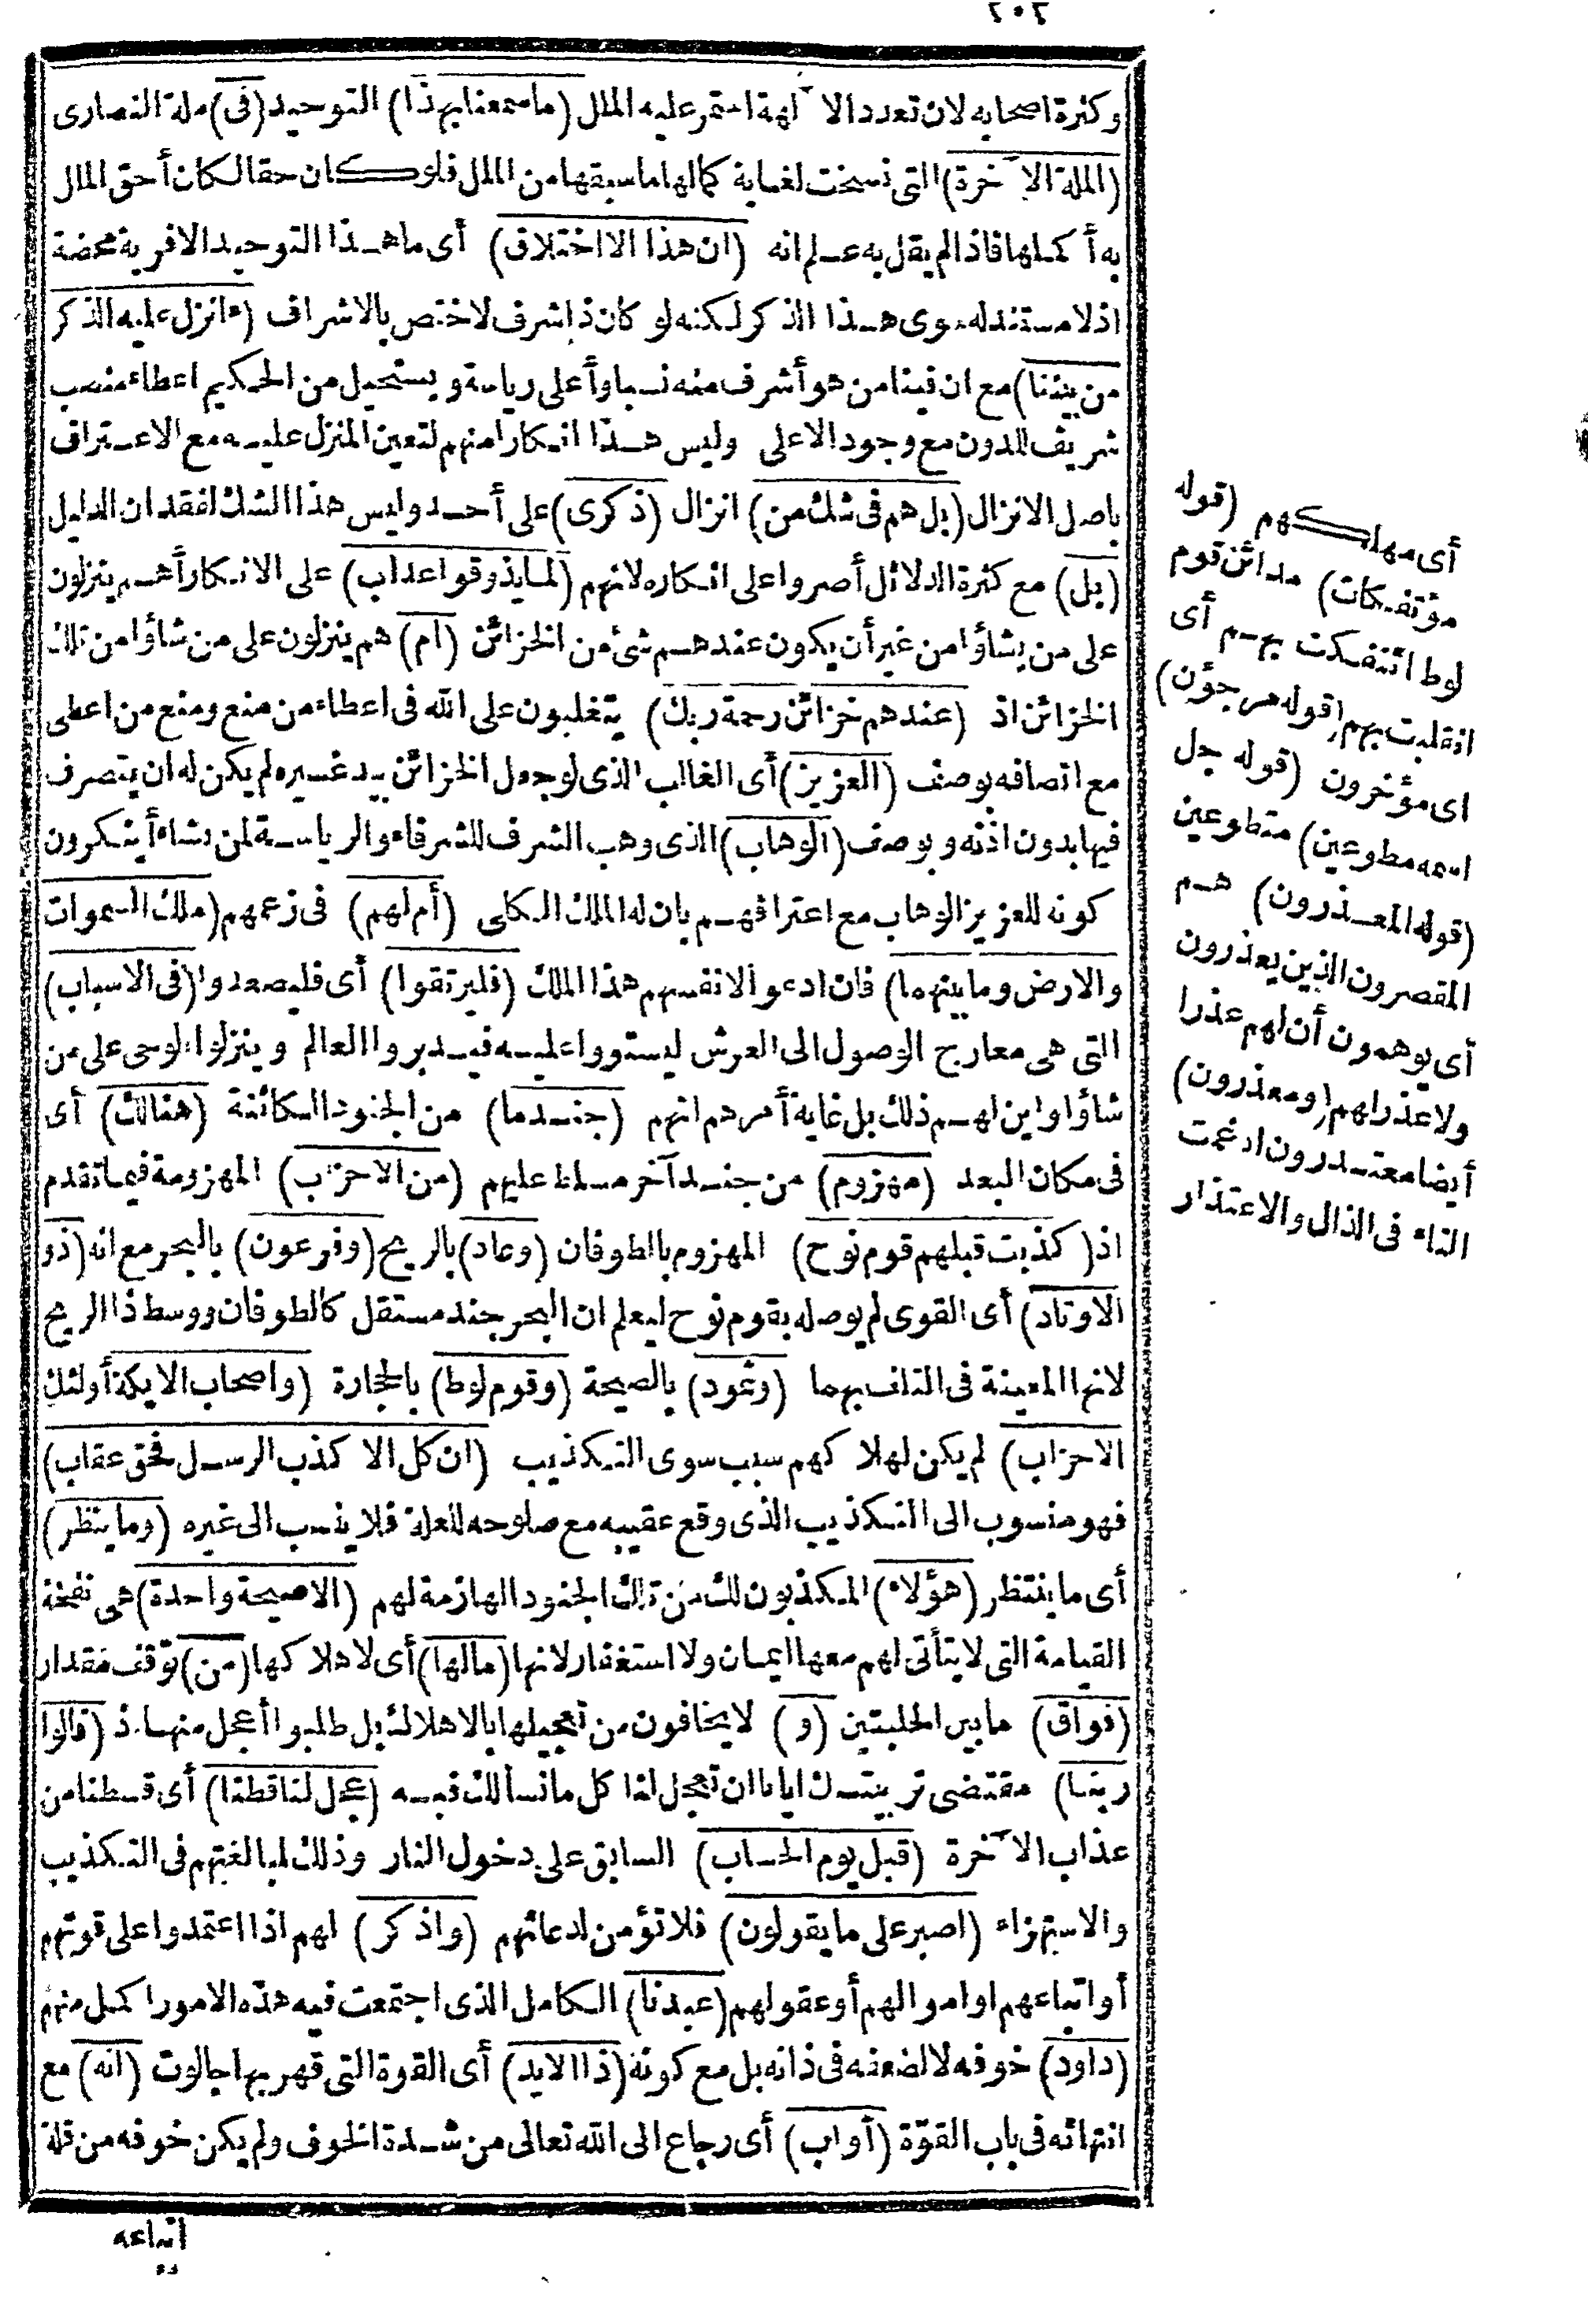 ٢٠٢
وكثرة اصحابه لان تعدد الآلهة استمر عليه الملل (ما سمعنا بهذا) التوحيد (فى) ملة النصارى
(الملة الآخرة) التى نسخت لغاية كمالها ما سبقها من الملل فلو كان حقا لكان أحق الملل
به أكملها فاذا لم يقل به علم انه (ان هذا الا اختلاق) أى ما هذا التوحيد الا فرية محضة
اذ لا مستند له سوى هذا الذكر لكنه لو كان ذا شرف لاختص بالاشراف (ءانزل عليه الذكر
من بيننا) مع ان فينا من هو أشرف منه نسبا وأعلى رياسة ويستحيل من الحكيم اعطاء منصب
شريف للدون مع وجود الاعلى وليس هذا انكارا منهم لتعين المنزل عليه مع الاعتراف
باصل الانزال (بل هم فى شك من) انزال (ذكرى) على أحد وليس هذا الشك لفقدان الدليل
(بل) مع كثرة الدلائل أصروا على انكاره لانهم (لما يذوقوا عذاب) على الانكار أهم ينزلون
على من يشاؤا من غير أن يكون عندهم شئ من الخزائن (ام) هم ينزلون على من شاؤا من تلك
الخزائن اذ (عندهم خزائن رحمة ربك) يتغلبون على الله فى اعطاء من منع ومنع من اعطى
مع اتصافه بوصف (العزيز) أى الغالب الذى لو جعل الخزائن بيد غيره لم يكن له ان يتصرف
فيها بدون اذنه وبوصف (الوهاب) الذى وهب الشرف للشرفاء والرياسة لمن يشاء أينكرون
كونه للعزيز الوهاب مع اعترافهم بان له الملك الكلى (أم لهم) فى زعمهم (ملك السموات
والارض وما بينهما) فان ادعوا لانفسهم هذا الملك (فليرتقوا) أى فليصعدوا (فى الاسباب)
التى هى معارج الوصول الى العرش ليستووا عليه فيدبروا العالم وينزلوا الوحى على من
شاؤا واين لهم ذلك بل غاية أمرهم انهم (جند ما) من الجنود الكائنة (هنالك) أى
فى مكان البعد (مهزوم) من جند آخر مسلط عليهم (من الاحزاب) المهزومة فيما تقدم
اذ (كذبت قبلهم قوم نوح) المهزوم بالطوفان (وعاد) بالريح (وفرعون) بالبحر مع انه (ذو
الاوتاد) أى القوى لم يوصله بقوم نوح ليعلم ان البحر جند مستقل كالطوفان ووسط ذا الريح
لانها المعينة فى التلف بهما (وثمود) بالصيحة (وقوم لوط) بالحجارة (واصحاب الايكة أولئك
الاحزاب) لم يكن لهلاكهم سبب سوى التكذيب (ان كل الا كذب الرسل فحق عقاب)
فهو منسوب الى التكذيب الذى وقع عقيبه مع صلوحه للعلة فلا ينسب الى غيره (وما ينظر)
أى ما ينتظر (هؤلاء) المكذبون لك من تلك الجنود الهازمة لهم (الا صيحة واحدة) هى نفخة
القيامة التى لا يتأتى لهم معها ايمان ولا استغفار لانها (مالها) أى لاهلاكها (من) توقف مقدار
(فواق) ما بين الحلبتين (و) لا يخافون من تعجيلها بالاهلاك بل طلبوا أعجل منها اذ (قالوا
ربنا) مقتضى تربيتك ايانا ان تعجل لنا كل ما نسألك فيه (عجل لنا قطنا) أى قسطنا من
عذاب الآخرة (قبل يوم الحساب) السابق على دخول النار وذلك لمبالغتهم فى التكذيب
والاستهزاء (اصبر على ما يقولون) فلا تؤمن لدعائهم (واذكر) لهم اذا اعتمدوا على قوتهم
أو اتباعهم او اموالهم أو عقولهم (عبدنا) الكامل الذى اجتمعت فيه هذه الامور اكمل منهم
(داود) خوفه لا لضعفه فى ذاته بل مع كونه (ذا الايد) أى القوة التى قهر بها جالوت (انه) مع
انتهائه فى باب القوّة (أواب) أى رجاع الى الله تعالى من شدة الخوف ولم يكن خوفه من قلة
اتباعه
أى مهلكهم (قوله
مؤتفكات) مدائن قوم
لوط ائتفكت بهم أى
انقلبت بهم (قوله مرجؤن)
اى مؤخرون (قوله جل
اسمه مطوعين) متطوعين
(قوله المعذرون) هم
المقصرون الذين يعذرون
أى يوهمون أن لهم عذرا
ولا عذر لهم (ومعذرون)
أيضا معتذرون ادغمت
التاء فى الذال والاعتذار